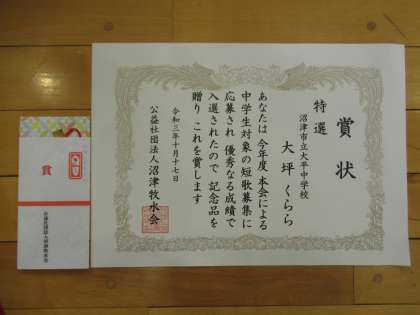 賞状
特選
沼津市立大平中学校
大坪くらら
あなたは 今年度本会による
中学生対象の短歌募集に
応募され 優秀なる成績で
入選されたので 記念品を
贈り これを賞します
令和三年十月十七日
公益社団法人沼津牧水会
賞
公益社団法人沼津牧水会